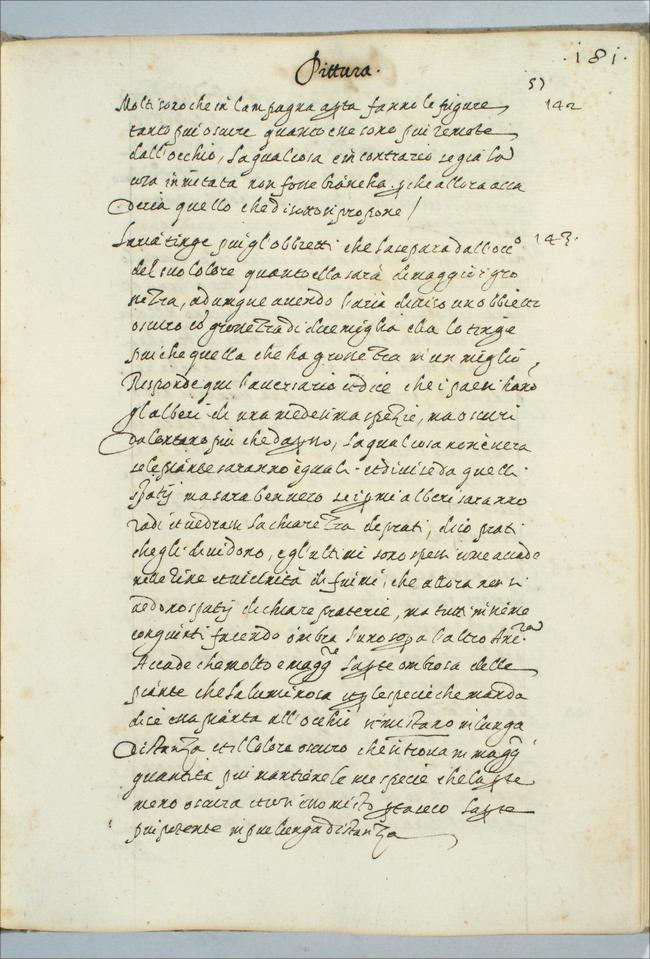 ·181·
Pittura·
5)
Molti sono che in Campagna apta fanno le figure 142
tanto piu oscure quanto che sono piu remote
dall'occhio, la qual cosa e in contrario se gia la
cosa immitata non fosse biancha, pche allora acca
deria quello che di sotto si propone /
L'aria tinge piu gl'obbietti che la separa dall'occo 143·
del suo colore quanto ella sarà di maggior gro
ssezza, adunque avendo l'aria diviso un obbietto
oscuro cō grossezza di due miglia ella lo tinge
piu che quella che ha grossezza in un miglio,
Risponde qui l'aversario et dice che i paesi hano
gl'alberi di una medesima spezie, ma oscuri
da lontano piu che dapsso, la qual cosa non è vera
se le piante saranno eguali et divise da quelli
spatij ma sara ben vero se i pmi alberi saranno
radi et vedrassi la chiarezza de prati, dico prati
che gli dividono, e gl'ultimi sono spessi come accade
nelle rive et vicinità di fiumi, che allora non si
vedono spatij di chiare praterie, ma tutti insieme
congiunti facendo ombra l'uno sopa l'altro Anza
Accade che molto e magge la pte ombrosa delle
piante che la luminosa et p le specie che manda
di se essa pianta all'occhio si mistano in lunga
distanza et il colore oscuro che si trova in magg
quantità piu mantiene le sue specie che la pte
meno oscura et cosi esso misto pta seco la pte
piu potente in piu lunga distanza